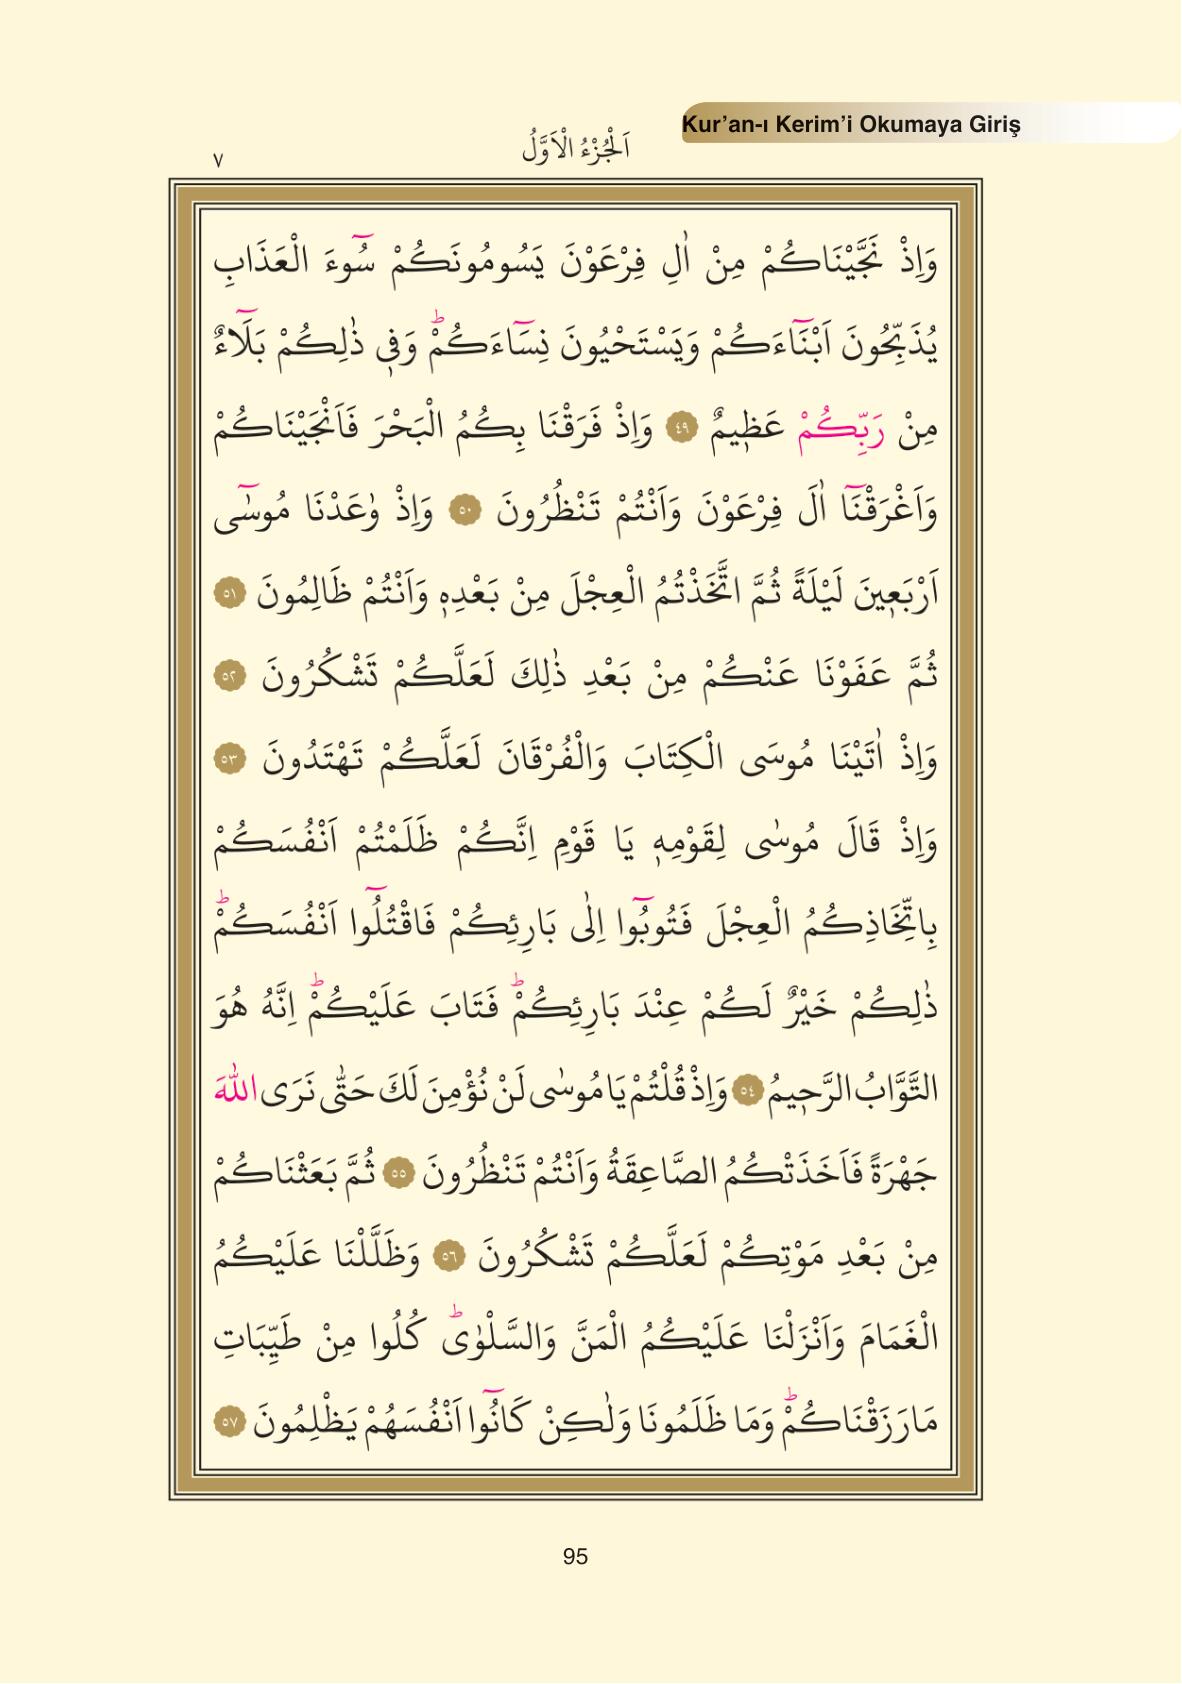 Kur’an-ı Kerim’i Okumaya Giriş
اَلْجُزْءُ الْاَوَّلُ
٧
وَاِذْ نَجَّيْنَاكُمْ مِنْ اٰلِ فِرْعَوْنَ يَسُومُونَكُمْ سُٓوءَ الْعَذَابِ
يُذَبِّحُونَ اَبْنَٓاءَكُمْ وَيَسْتَحْيُونَ نِسَٓاءَكُمْۜ وَف۪ي ذٰلِكُمْ بَلَٓاءٌ
مِنْ رَبِّكُمْ عَظ۪يمٌ ﴿٤٩﴾ وَاِذْ فَرَقْنَا بِكُمُ الْبَحْرَ فَاَنْجَيْنَاكُمْ
وَاَغْرَقْنَٓا اٰلَ فِرْعَوْنَ وَاَنْتُمْ تَنْظُرُونَ ﴿٥٠﴾ وَاِذْ وٰعَدْنَا مُوسٰٓى
اَرْبَع۪ينَ لَيْلَةً ثُمَّ اتَّخَذْتُمُ الْعِجْلَ مِنْ بَعْدِه۪ وَاَنْتُمْ ظَالِمُونَ ﴿٥١﴾
ثُمَّ عَفَوْنَا عَنْكُمْ مِنْ بَعْدِ ذٰلِكَ لَعَلَّكُمْ تَشْكُرُونَ ﴿٥٢﴾
وَاِذْ اٰتَيْنَا مُوسَى الْكِتَابَ وَالْفُرْقَانَ لَعَلَّكُمْ تَهْتَدُونَ ﴿٥٣﴾
وَاِذْ قَالَ مُوسٰى لِقَوْمِه۪ يَا قَوْمِ اِنَّكُمْ ظَلَمْتُمْ اَنْفُسَكُمْ
بِاتِّخَاذِكُمُ الْعِجْلَ فَتُوبُٓوا اِلٰى بَارِئِكُمْ فَاقْتُلُٓوا اَنْفُسَكُمْۜ
ذٰلِكُمْ خَيْرٌ لَكُمْ عِنْدَ بَارِئِكُمْۜ فَتَابَ عَلَيْكُمْۜ اِنَّهُ هُوَ
التَّوَّابُ الرَّح۪يمُ ﴿٥٤﴾ وَاِذْ قُلْتُمْ يَا مُوسٰى لَنْ نُؤْمِنَ لَكَ حَتّٰى نَرَى اللّٰهَ
جَهْرَةً فَاَخَذَتْكُمُ الصَّاعِقَةُ وَاَنْتُمْ تَنْظُرُونَ ﴿٥٥﴾ ثُمَّ بَعَثْنَاكُمْ
مِنْ بَعْدِ مَوْتِكُمْ لَعَلَّكُمْ تَشْكُرُونَ ﴿٥٦﴾ وَظَلَّلْنَا عَلَيْكُمُ
الْغَمَامَ وَاَنْزَلْنَا عَلَيْكُمُ الْمَنَّ وَالسَّلْوٰىۜ كُلُوا مِنْ طَيِّبَاتِ
مَا رَزَقْنَاكُمْۜ وَمَا ظَلَمُونَا وَلٰكِنْ كَانُٓوا اَنْفُسَهُمْ يَظْلِمُونَ ﴿٥٧﴾
95